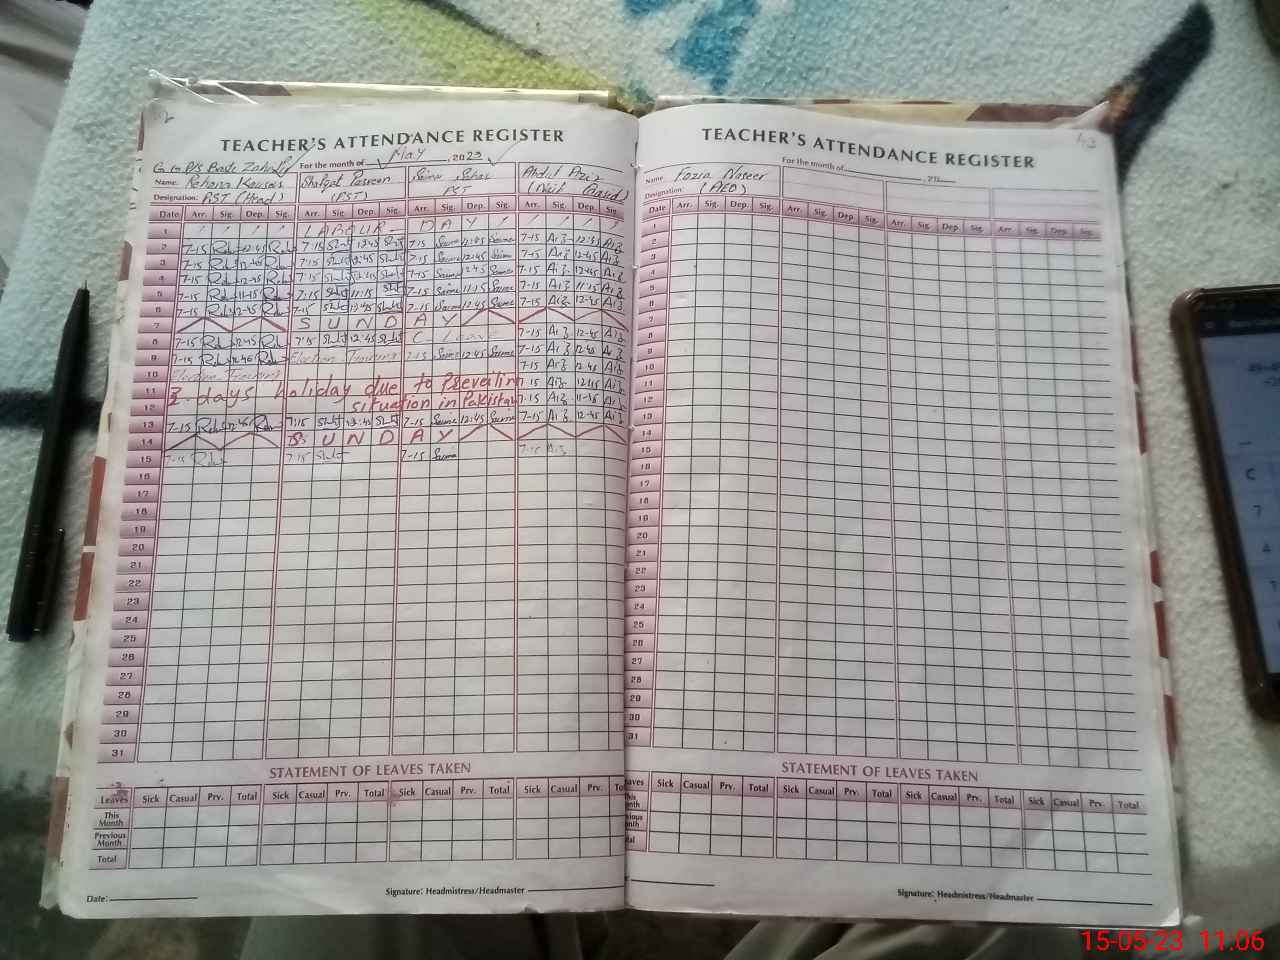 TEACHER'S ATTENDANCE REGISTER
For the month of May, 2023
Name: Rehana Kausar
Shafqat Parveen
Saima Sahar
Abdul Aziz
Designation: PST (Head)
(PST)
PST
(Naib Qasid)
Date Arr. Sig. Dep. Sig. Arr. Sig. Dep. Sig. Arr. Sig. Dep. Sig. Arr. Sig. Dep. Sig.
1 LABOUR DAY
2 7-15 12:45 7:15 12:45 7-15 Saima 12:45 Saima 7-15 Aiz 12:45 Aiz
3 7-15 12-45 7:15 12:45 7-15 Saima 12:45 Saima 7-15 Aiz 12-45 Aiz
4 7-15 12-45 7:15 7-15 Saima 12:45 Saima 7-15 Aiz 12-45 Aiz
5 7-15 11-15 7:15 11:15 7-15 Saima 11:15 Saima 7-15 Aiz 11:15 Aiz
6 7-15 12-45 7-15 12:45 7-15 Saima 12:45 Saima 7-15 Aiz 12-45 Aiz
7 SUNDAY
8 7-15 12:45 7:15 12:45 C-Leave 7-15 Aiz 12-45 Aiz
9 7-15 12:45 Election Training 7-15 Saima 12:45 Saima 7-15 Aiz 12:45 Aiz
10 Election Training 7-15 Aiz 12:45 Aiz
11 3 days holiday due to Prevailing 7-15 Aiz Aiz
12 situation in Pakistan 7-15 Aiz Aiz
13 7-15 12:45 7:15 12:45 7-15 Saima 12:45 Saima 7-15 Aiz 12-45 Aiz
14 SUNDAY
15 7-15 7:15 7-15 Saima 7-15 Aiz
16
17
18
19
20
21
22
23
24
25
26
27
28
29
30
31
STATEMENT OF LEAVES TAKEN
Leaves Sick Casual Prv. Total Sick Casual Prv. Total Sick Casual Prv. Total Sick Casual Prv.
This Month
Previous Month
Total
Signature: Headmistress/Headmaster
Date:
TEACHER'S ATTENDANCE REGISTER
For the month of , 20
Name: Fozia Naseer
Designation: (AEO)
Date Arr. Sig. Dep. Sig. Arr. Sig. Dep. Sig. Arr. Sig. Dep. Sig. Arr. Sig. Dep. Sig.
1
2
3
4
5
6
7
8
9
10
11
12
13
14
15
16
17
18
19
20
21
22
23
24
25
26
27
28
29
30
31
STATEMENT OF LEAVES TAKEN
Sick Casual Prv. Total Sick Casual Prv. Total Sick Casual Prv. Total Sick Casual Prv. Total
Signature: Headmistress/Headmaster
15-05-23 11:06